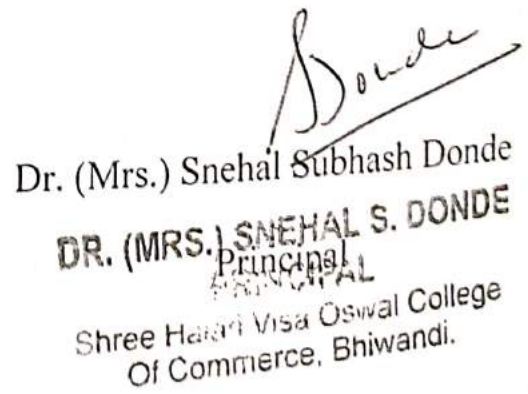 Donde
Dr. (Mrs.) Snehal Subhash Donde
DR. (MRS.) SNEHAL S. DONDE
Principal
PRINCIPAL
Shree Halari Visa Oswal College
Of Commerce, Bhiwandi.